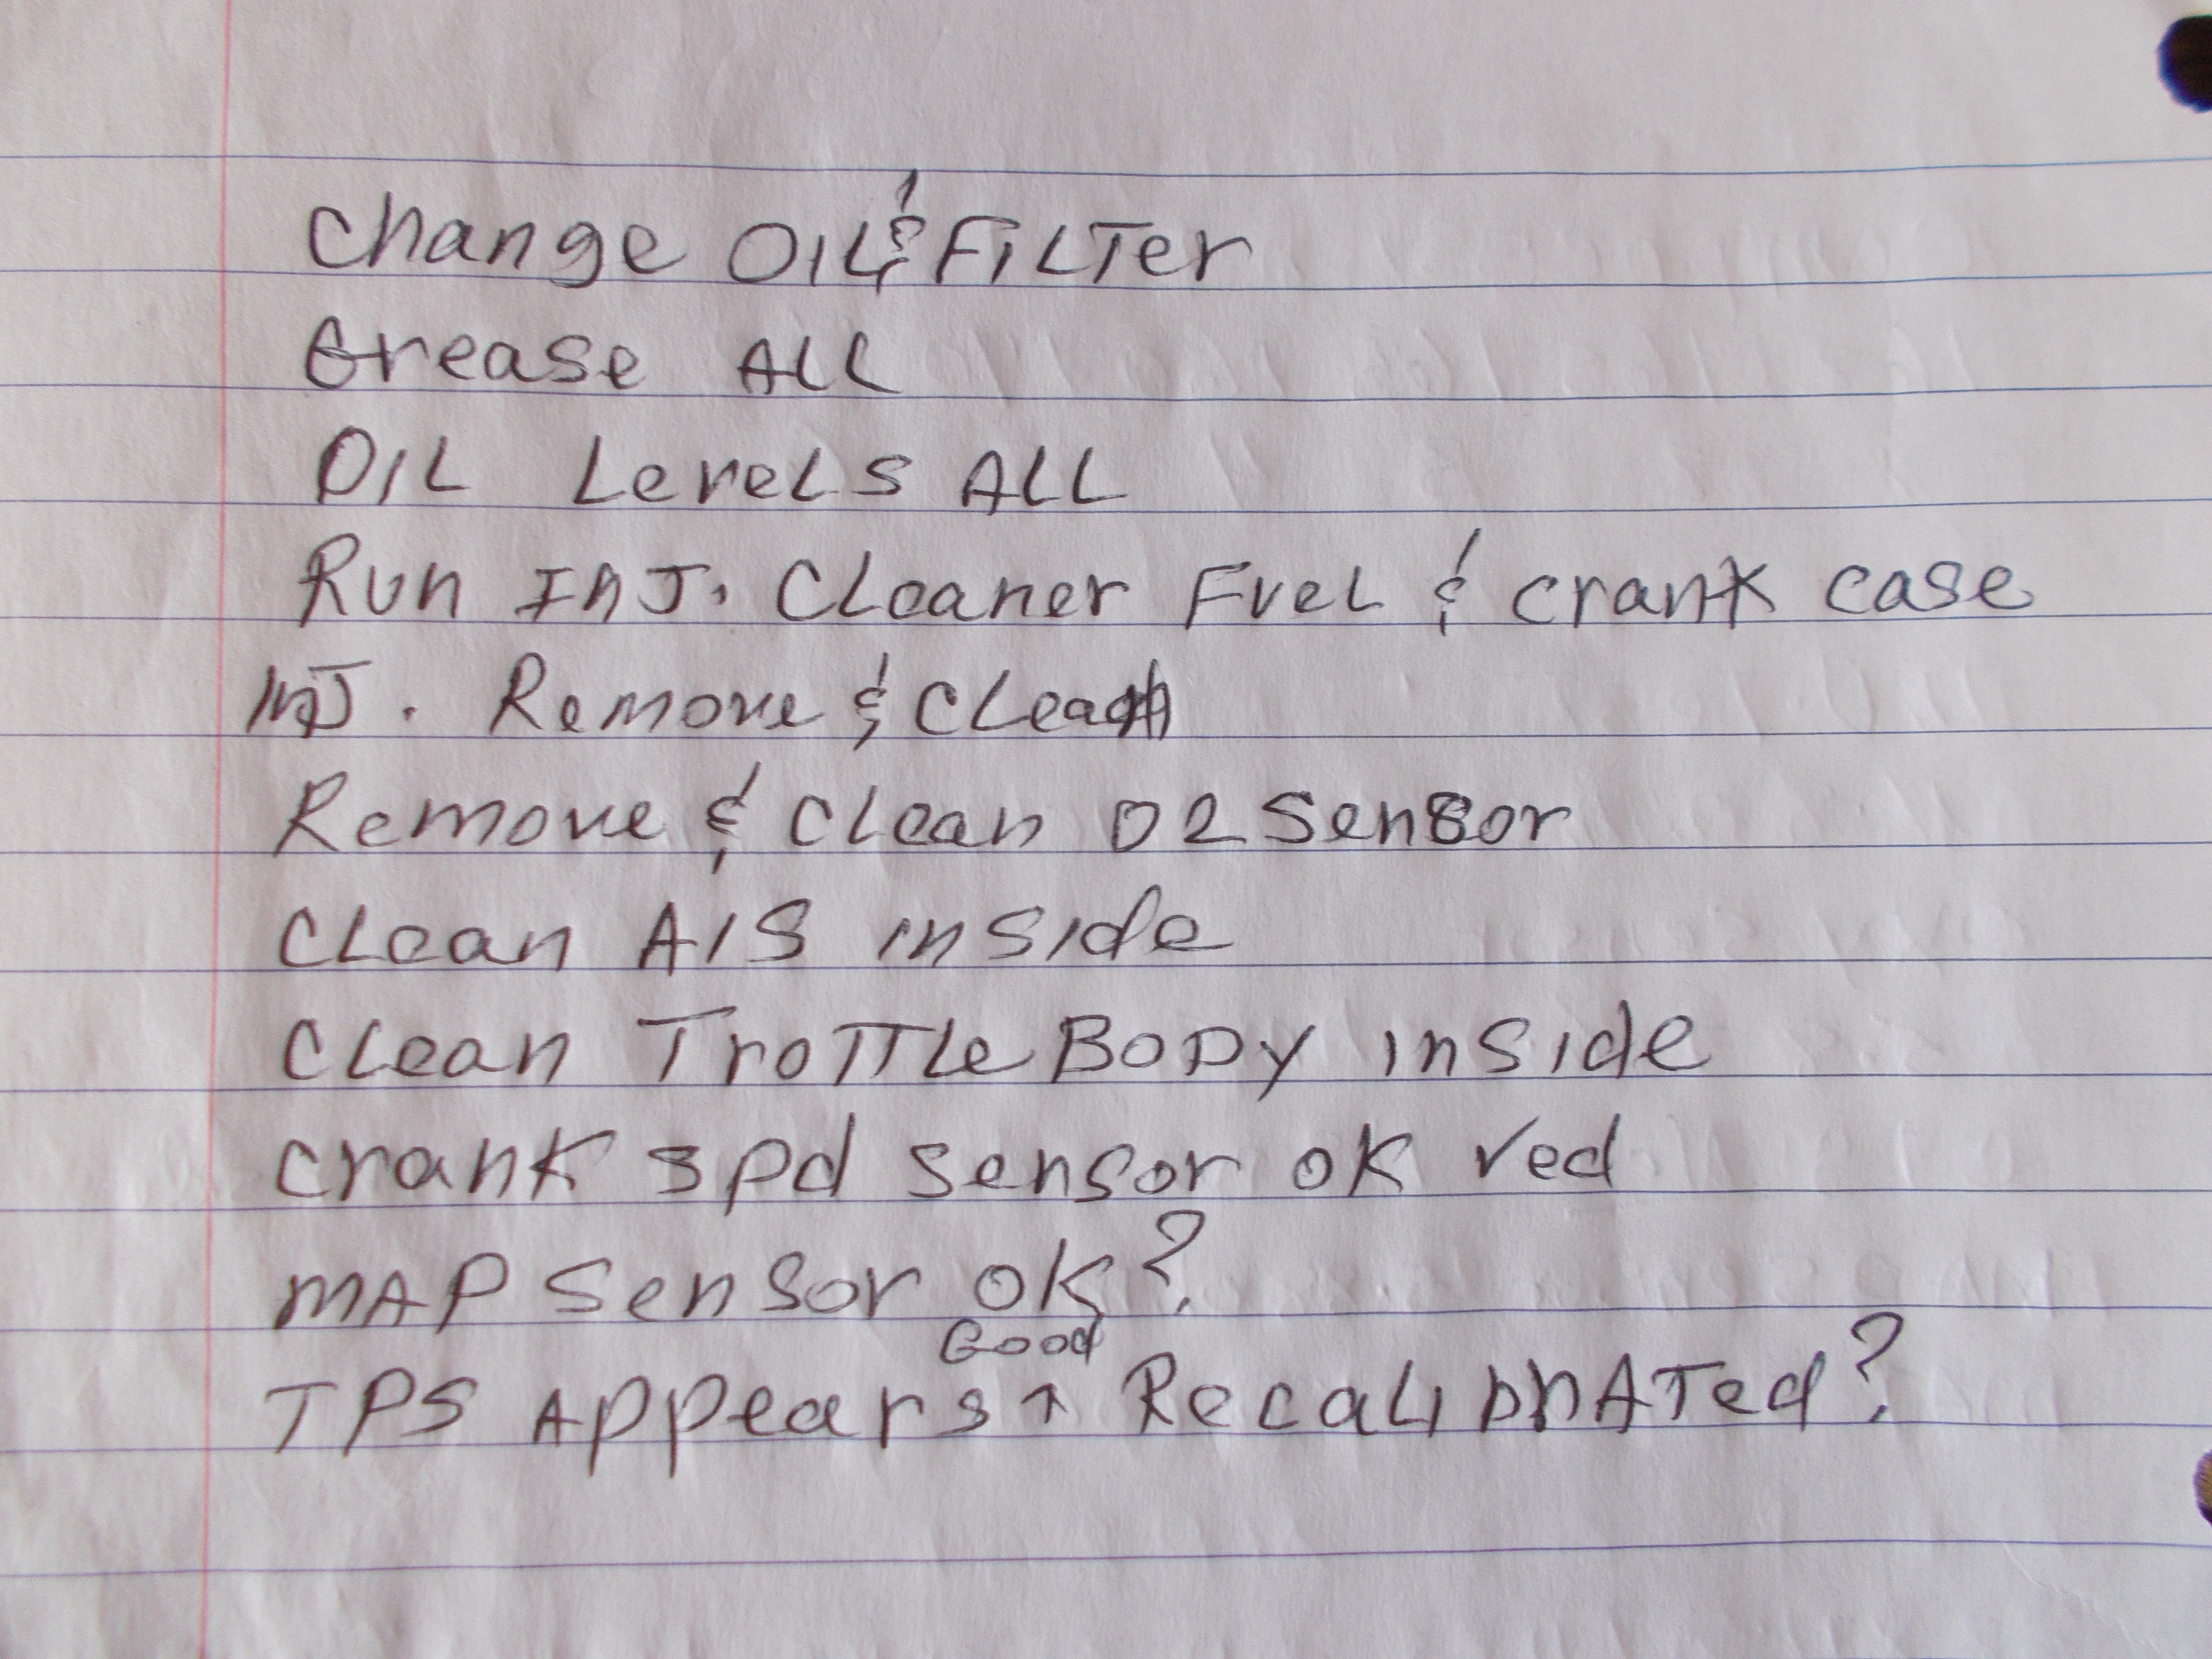 Change OIL & FILTer
Grease ALL
OIL LeveLS ALL
Run InJ. CLeaner FueL & crank case
InJ. Remove & CLean
Remove & CLean O2 Sensor
CLean AIS inside
CLean TroTTLe BODY inside
Crank spd sensor ok ved
MAP Sensor OK?
Good
TPS Appears ^ RecaLibrATed?